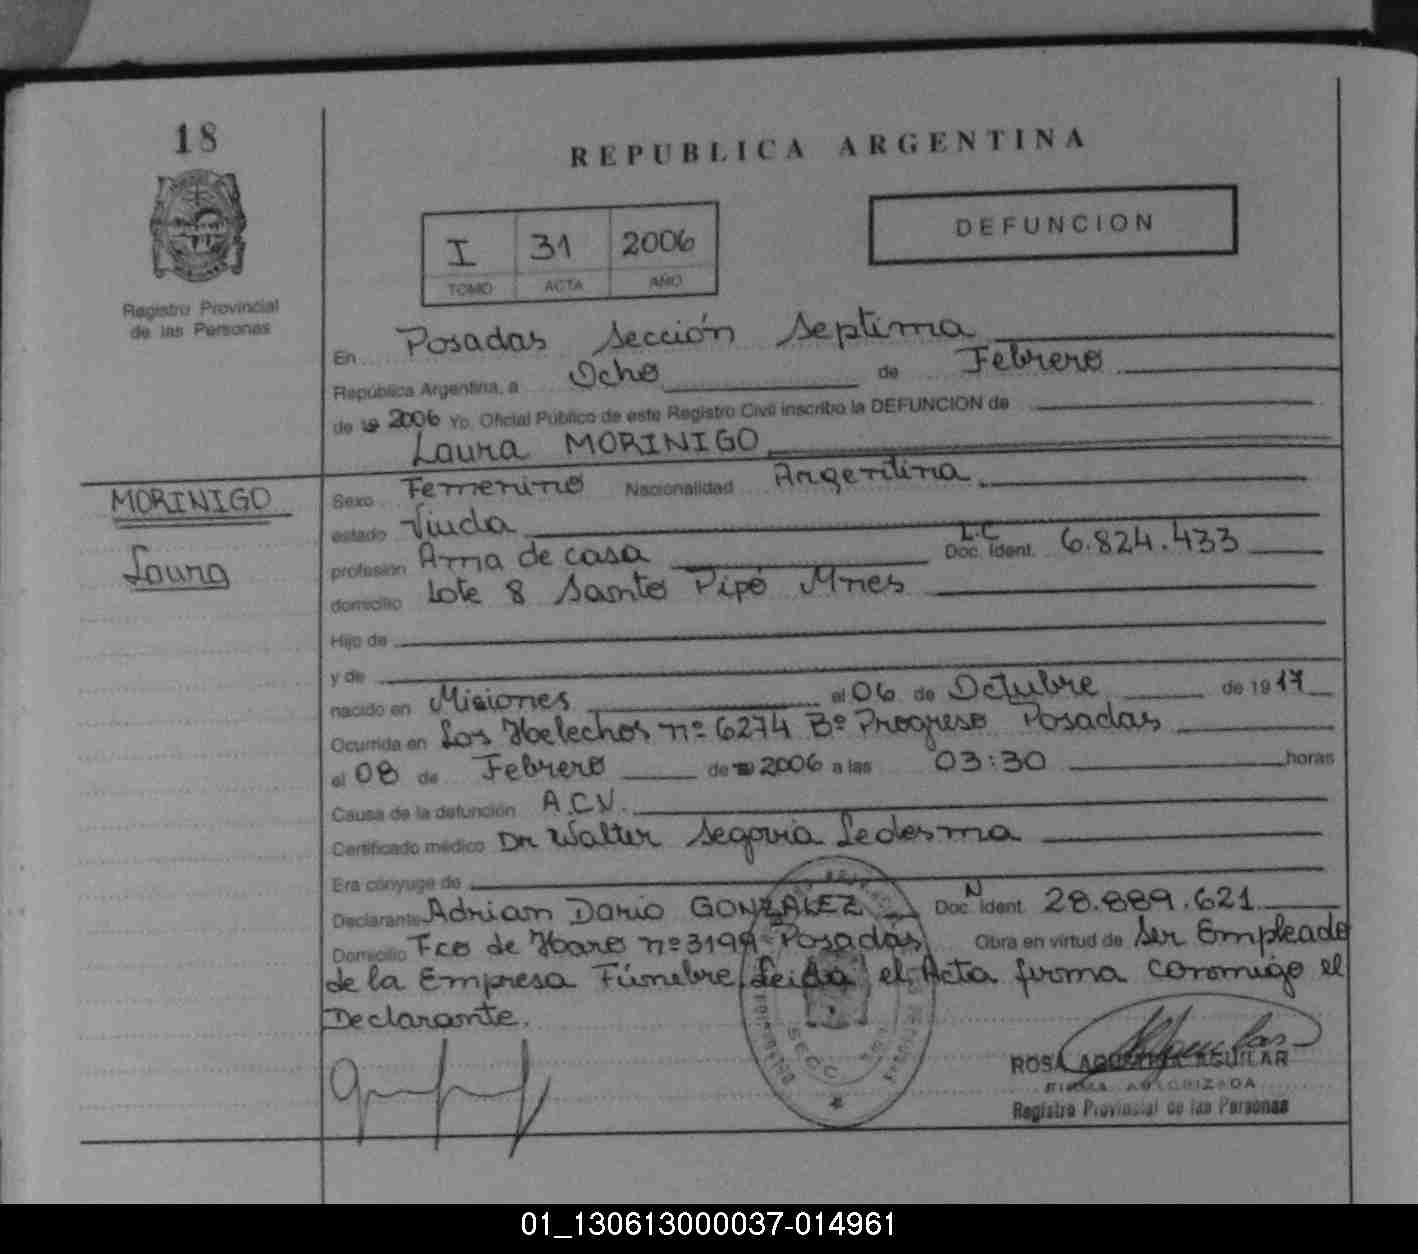 18
REPUBLICA ARGENTINA
Registro Provincial
de las Personas
I 31 2006
TOMO ACTA AÑO
DEFUNCION
En Posadas Sección Septima
República Argentina, a Ocho de Febrero
de 19 2006 Yo, Oficial Público de este Registro Civil inscribo la DEFUNCION de
Laura MORINIGO
MORINIGO
Laura
Sexo Femenino Nacionalidad Argentina
estado Viuda
profesión Ama de casa L.C Doc. Ident. 6.824.433
domicilio Lote 8 Santo Pipó Mnes
Hijo de
y de
nacido en Misiones el 06 de Octubre de 1917
Ocurrida en Los Helechos nº 6274 Bº Progreso Posadas
el 08 de Febrero de 2006 a las 03:30 horas
Causa de la defunción A.C.V.
Certificado médico Dr Walter Segovia Ledesma
Era cónyuge de
Declarante Adrian Dario GONZALEZ Doc. N Ident. 28.889.621
Domicilio Fco de Haro nº 3199 Posadas Obra en virtud de Ser Empleado
de la Empresa Fúnebre Leida el Acta firma conmigo el
Declarante.
ROSA AGUILAR
FIRMA AUTORIZADA
Registro Provincial de las Personas
01_130613000037-014961